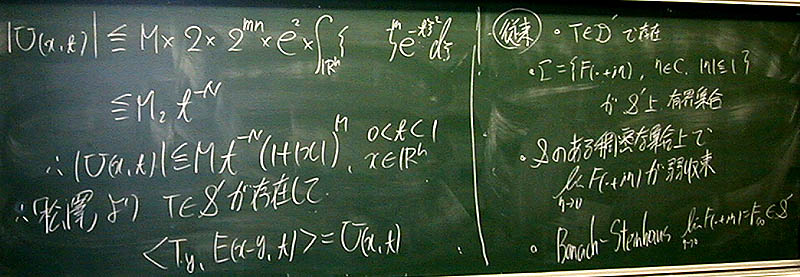 |U(x,t)| ≦ M × 2 × 2^{mn} × e^2 × ∫_{ℝ^n} ξ^m e^{-tξ^2} dξ
≦ M_2 t^{-N}
∴ |U(x,t)| ≦ M t^{-N} (1+|x|)^M, 0<t<1
x∈ℝ^n
より T∈S' が存在して
<T_y, E(x-y, t)> = U(x,t)
従来 • T∈D' で存在
• Σ = {F(·+iη), η∈C, |η|≦1}
が S' 上 有界集合
• S のある稠密な集合上で
lim_{η→0} F(·+iη) が弱収束
• Banach-Steinhaus lim_{η→0} F(·+iη) = F_∞ ∈ S'